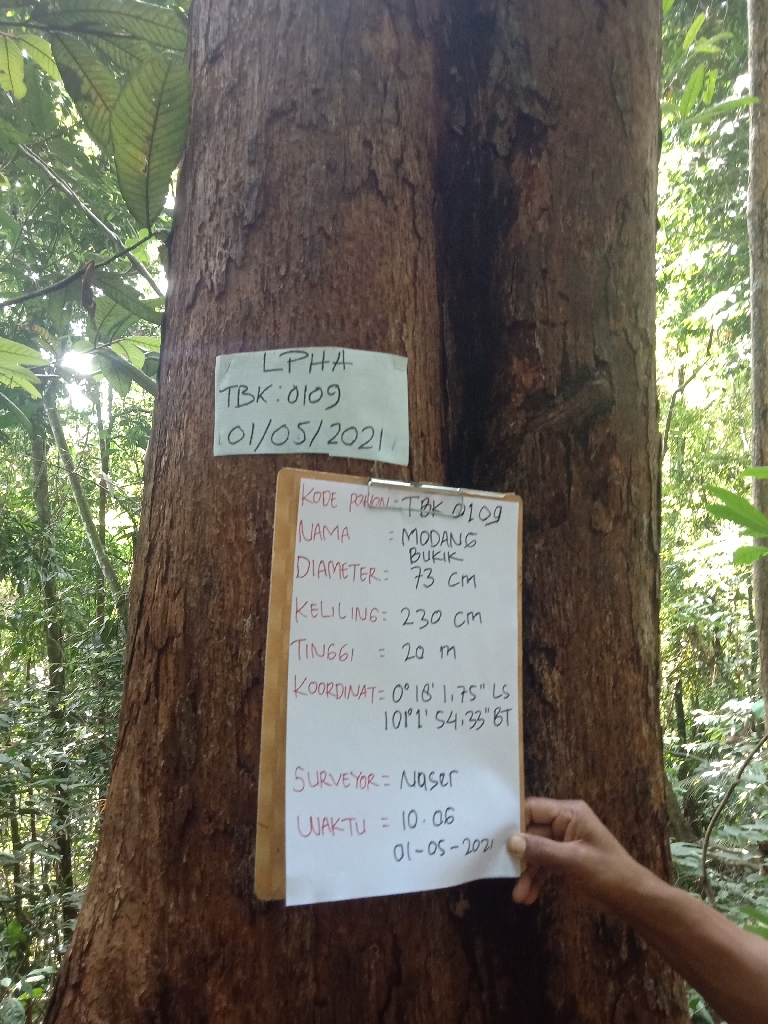 LPHA
TBK : 0109
01/05/2021
KODE POHON = TBK 0109
NAMA : MODANG
BUKIK
DIAMETER = 73 cm
KELILING = 230 cm
TINGGI = 20 m
KOORDINAT = 0° 18' 1,75" LS
101° 1' 54,33" BT
SURVEYOR = Naser
WAKTU = 10.06
01-05-2021